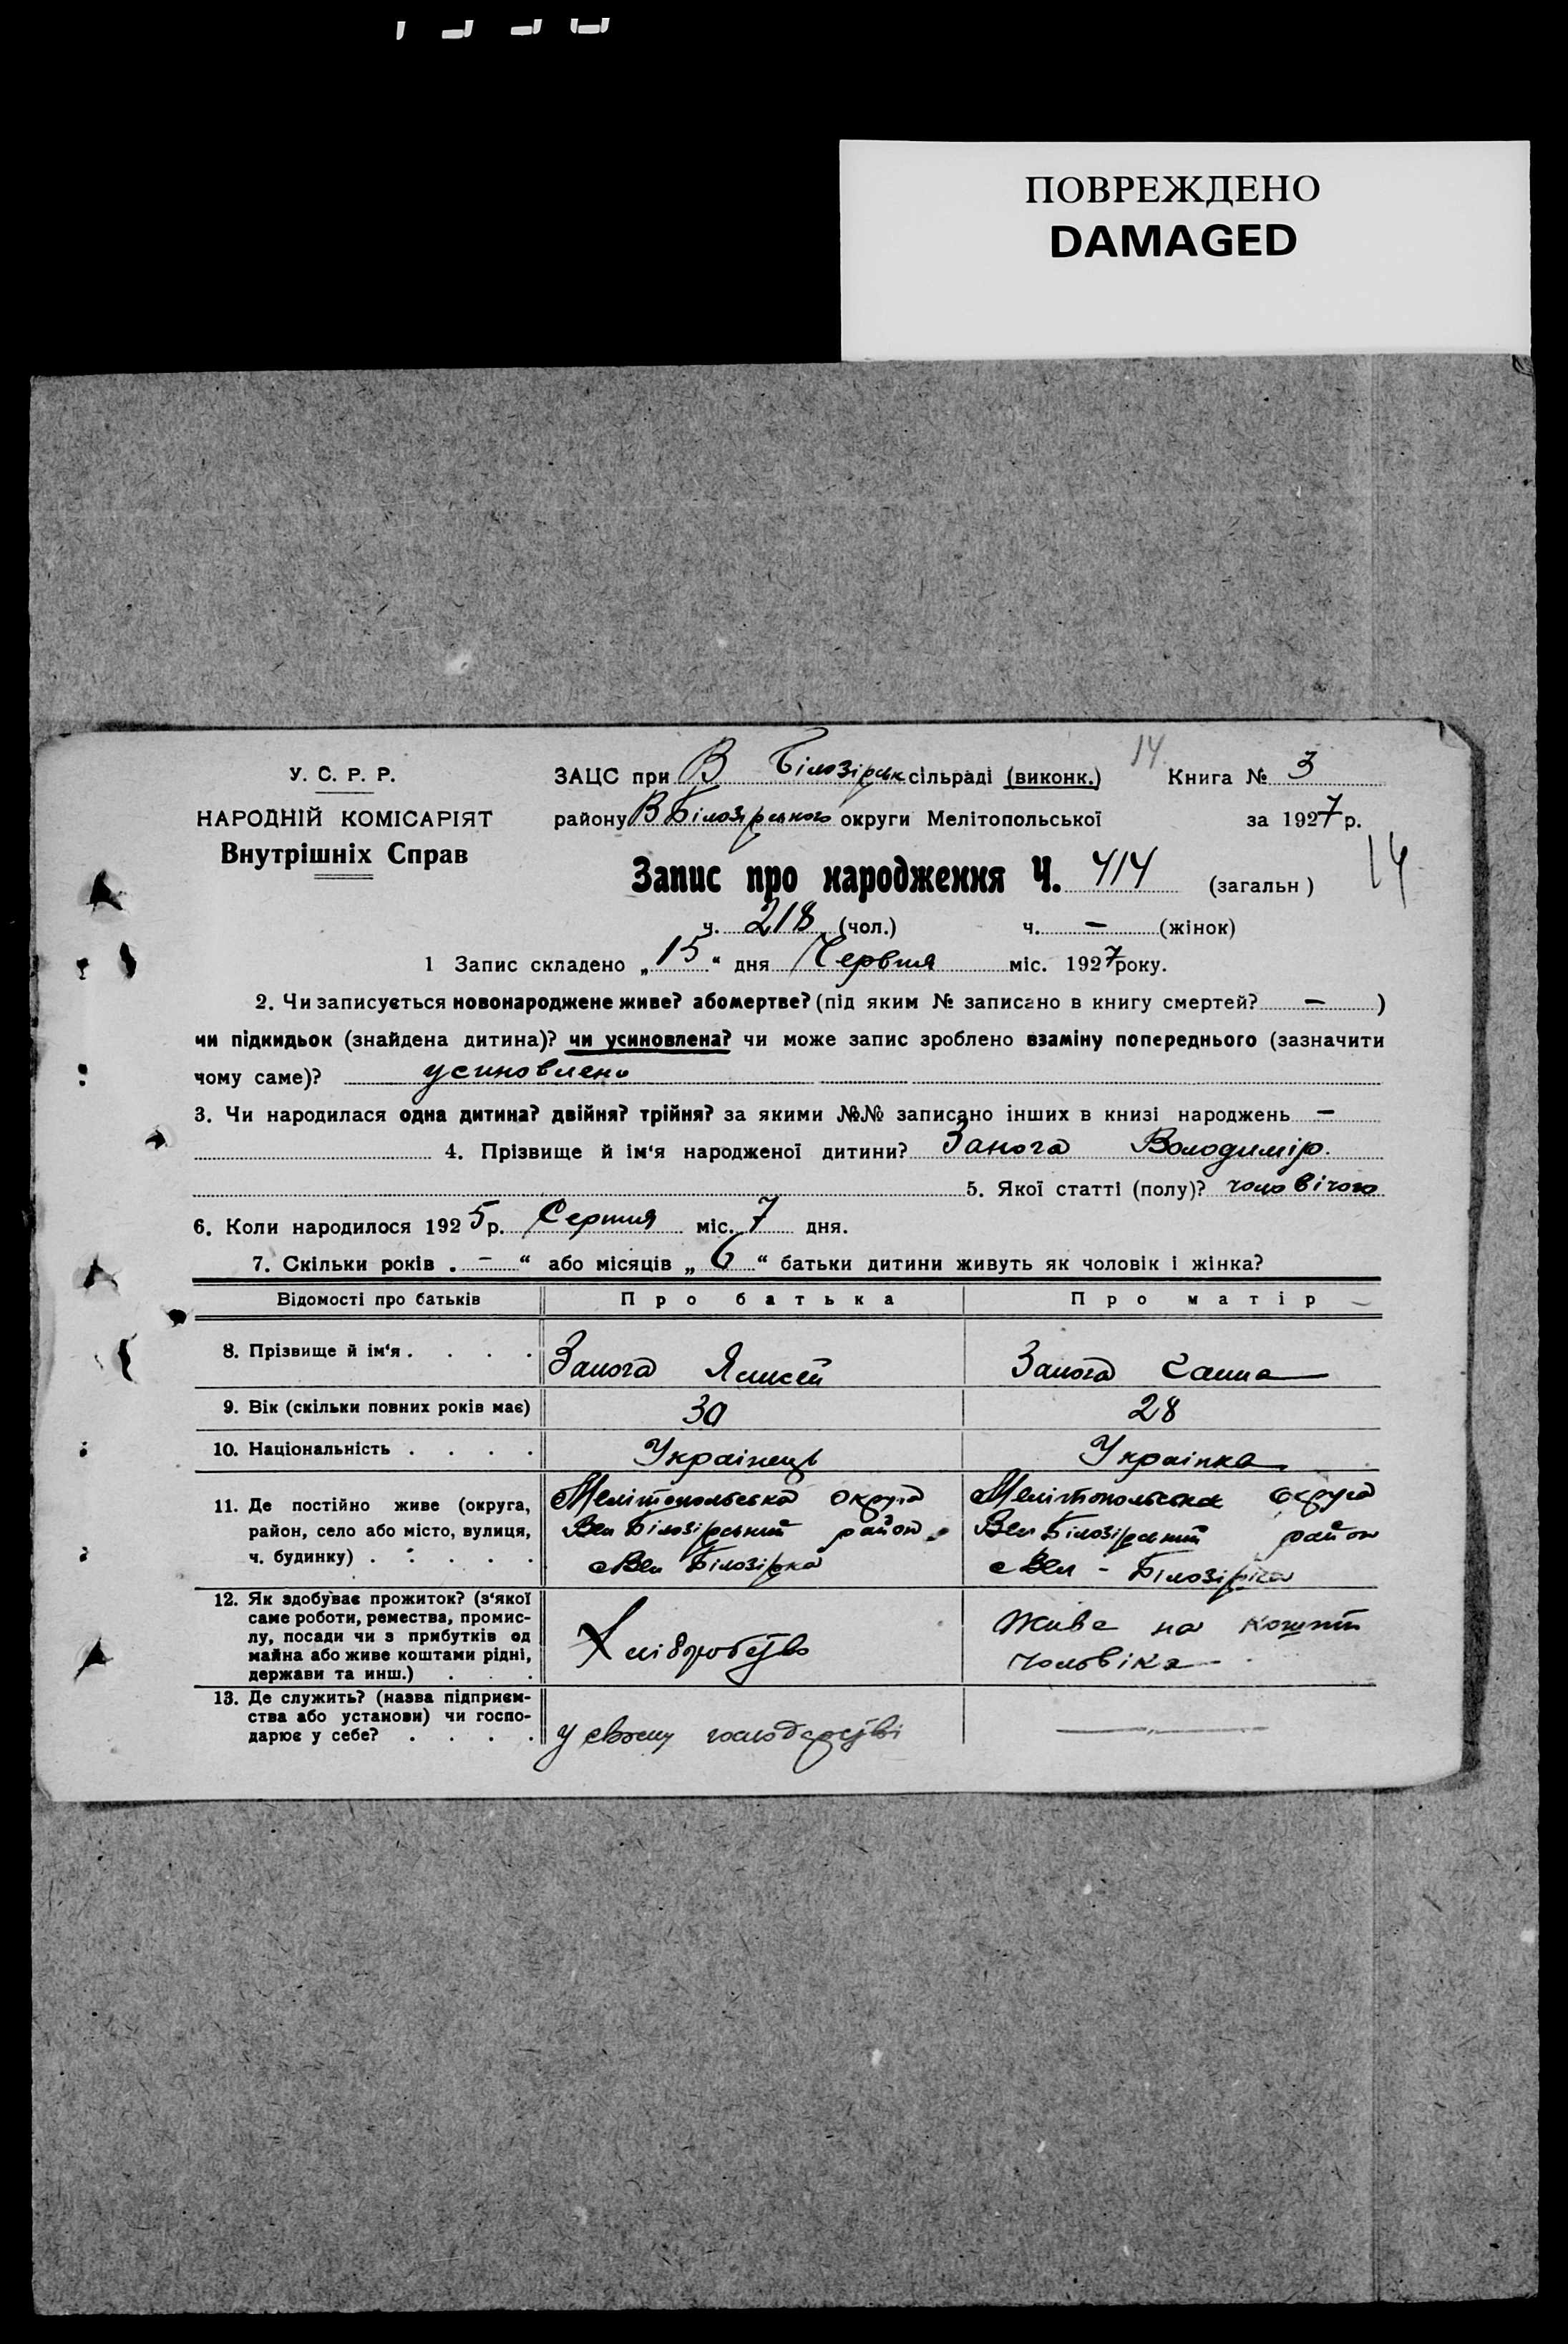 ПОВРЕЖДЕНО
DAMAGED
У. С. Р. Р.
НАРОДНІЙ КОМІСАРІЯТ
Внутрішніх Справ
ЗАЦС при В Білозірськ сільраді (виконк.)
14
Книга № 3
району В Білозірського округи Мелітопольської
за 1927 р.
Запис про народження Ч. 414 (загальн)
14
ч. 218 (чол.) ч. — (жінок)
1 Запис складено „15“ дня Червня міс. 1927 року.
2. Чи записується новонароджене живе? або мертве? (під яким № записано в книгу смертей? — )
чи підкидьок (знайдена дитина)? чи усиновлена? чи може запис зроблено взаміну попереднього (зазначити
чому саме)? усиновлено
3. Чи народилася одна дитина? двійня? трійня? за якими №№ записано інших в книзі народжень —
4. Прізвище й ім‘я народженої дитини? Занога Володимір.
5. Якої статті (полу)? чоловічого
6. Коли народилося 1925 р. Серпня міс. 7 дня.
7. Скільки років . — “ або місяців „ 6 “ батьки дитини живуть як чоловік і жінка?
Відомості про батьків
Про батька
Про матір
8. Прізвище й ім‘я . . . .
Занога
Занога
9. Вік (скільки повних років має)
30
28
10. Національність . . . .
Українець
Українка
11. Де постійно живе (округа,
район, село або місто, вулиця,
ч. будинку) . . . . .
Мелітопольська округа
Вел Білозірський район
с Вел Білозірка
Мелітопольська округа
Вел Білозірський район
с Вел - Білозірка
12. Як здобуває прожиток? (з‘якої
саме роботи, ремества, промис-
лу, посади чи з прибутків од
майна або живе коштами рідні,
держави та инш.) . . .
Хліборобство
Живе на кошти
чоловіка
13. Де служить? (назва підприєм-
ства або установи) чи госпо-
дарює у себе? . . . .
у своєму господарстві